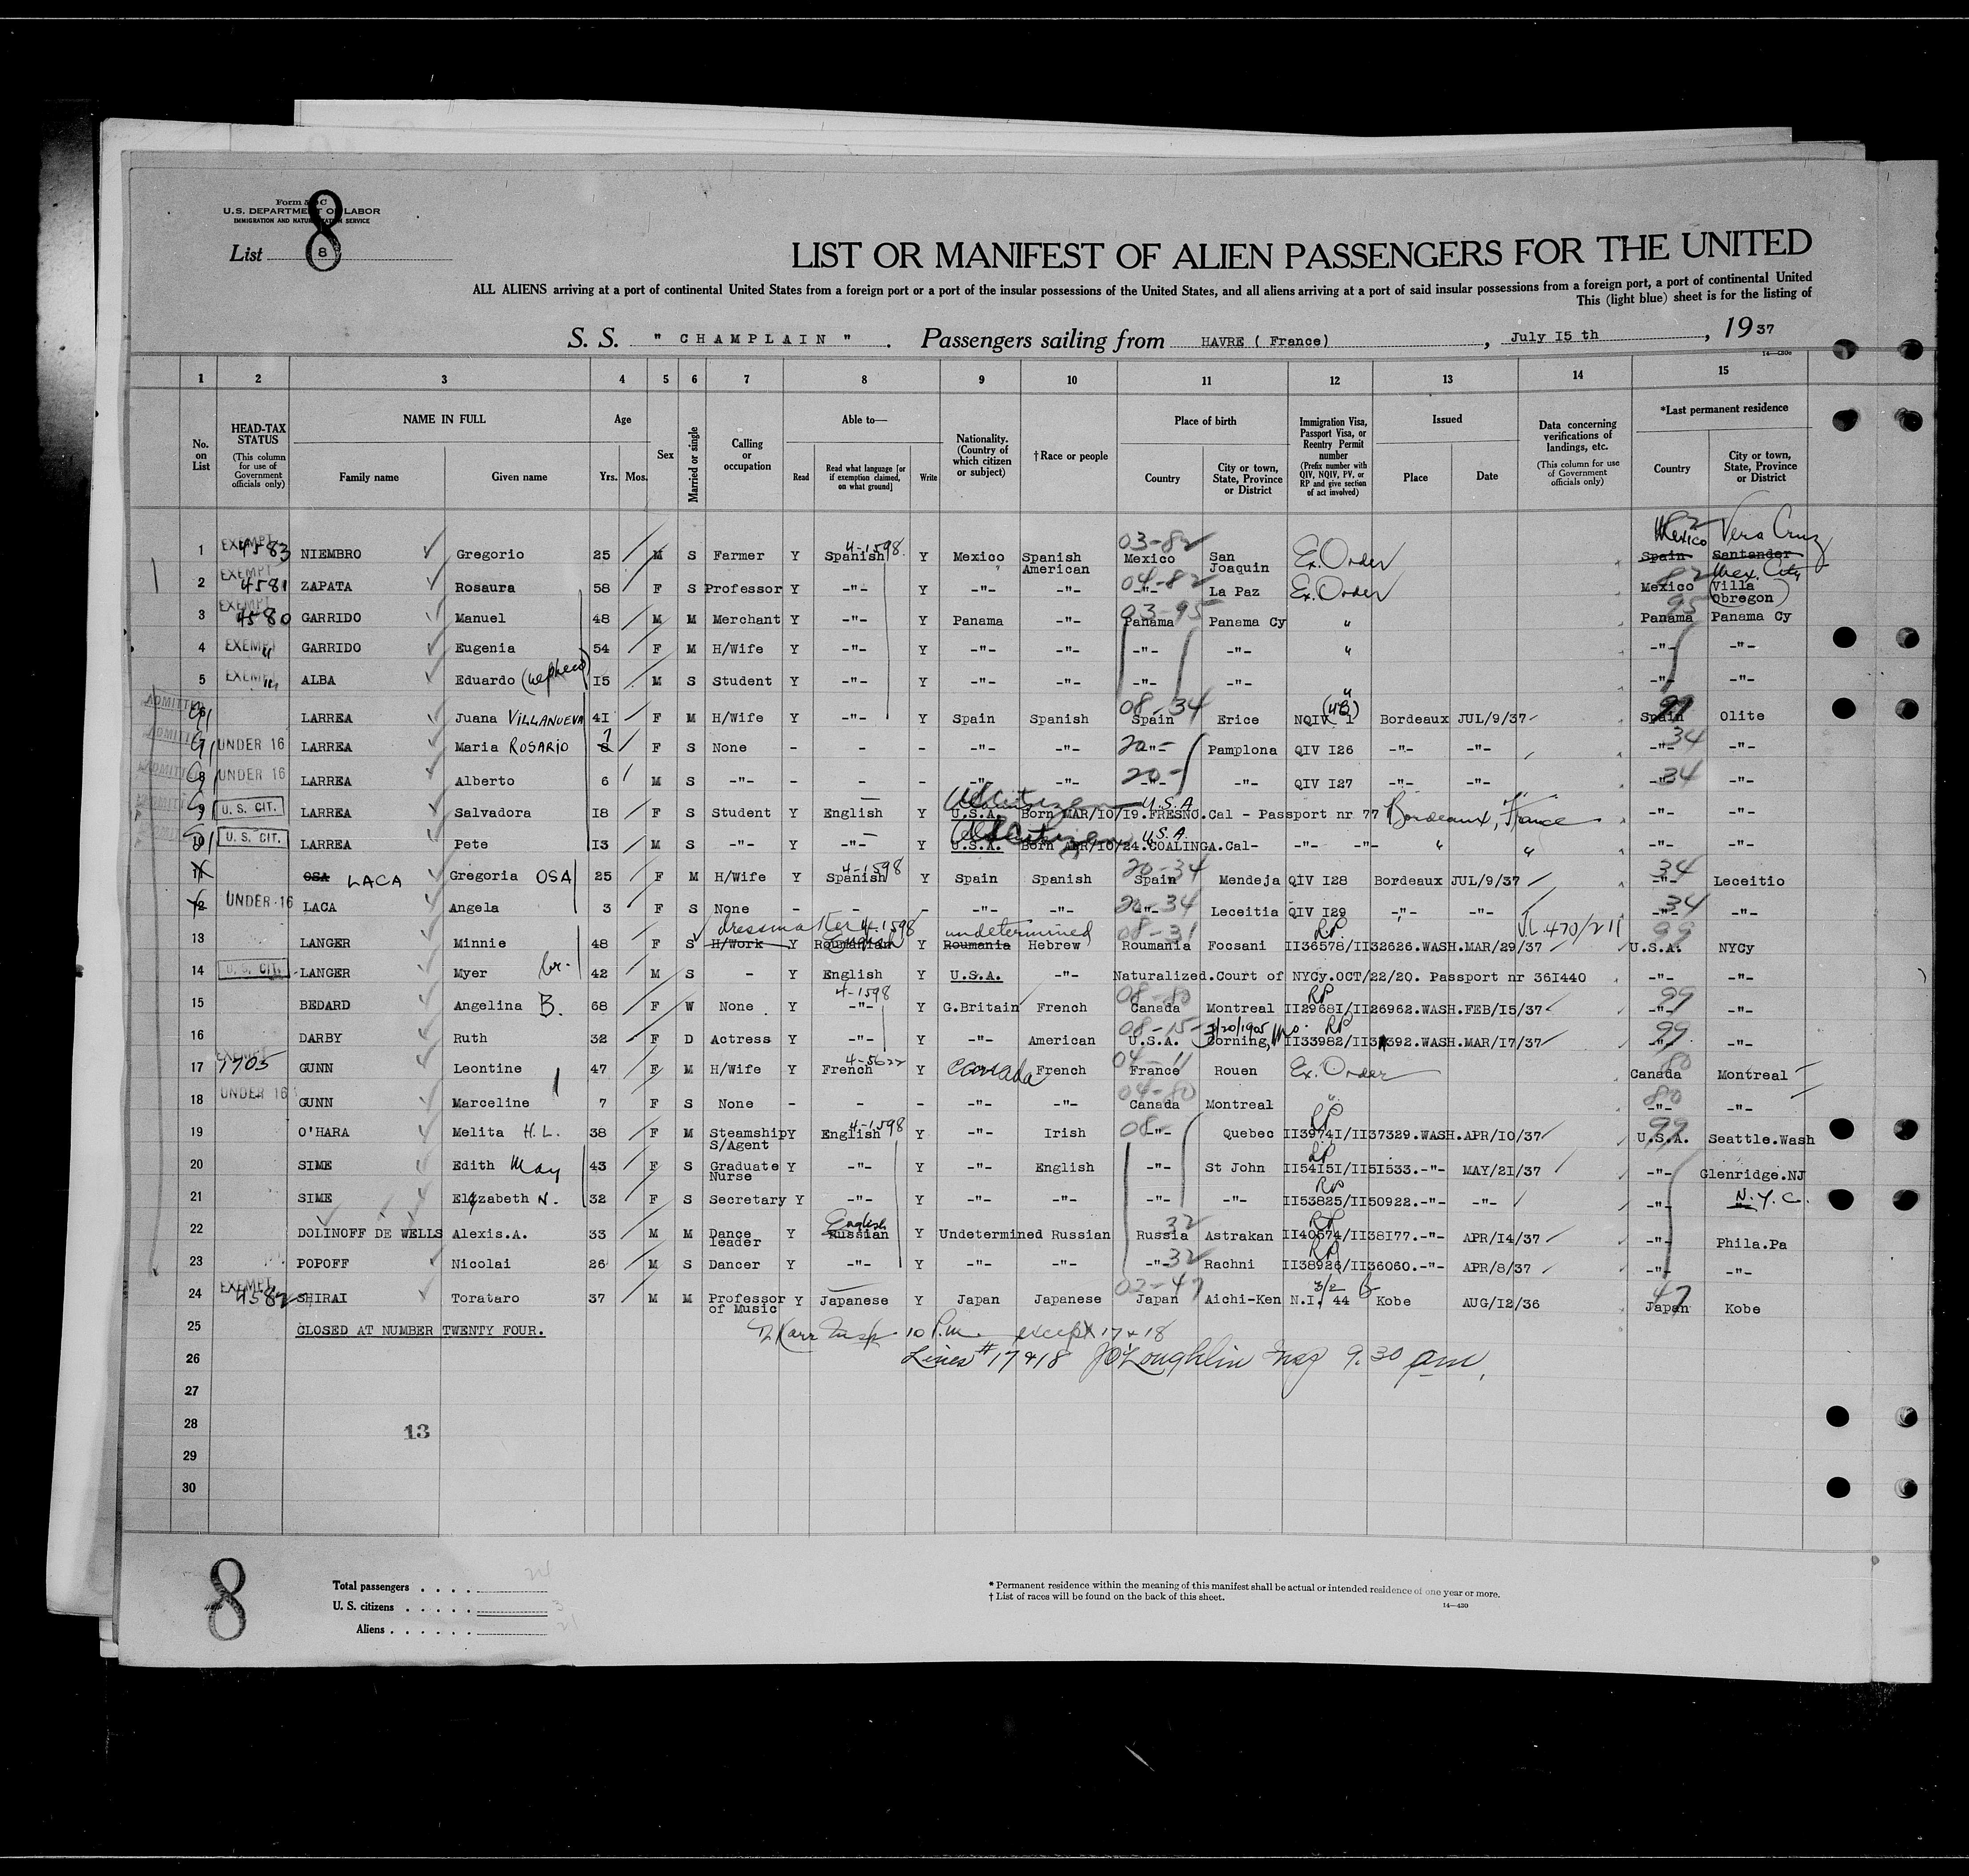 Form 500 C
U.S. DEPARTMENT OF LABOR
IMMIGRATION AND NATURALIZATION SERVICE
List 8
8
LIST OR MANIFEST OF ALIEN PASSENGERS FOR THE UNITED
ALL ALIENS arriving at a port of continental United States from a foreign port or a port of the insular possessions of the United States, and all aliens arriving at a port of said insular possessions from a foreign port, a port of continental United
This (light blue) sheet is for the listing of
S. S. " CHAMPLAIN " . Passengers sailing from HAVRE ( France) , July I5 th , 19 37
1 2 3 4 5 6 7 8 9 10 11 12 13 14 15
No. on List
HEAD-TAX STATUS (This column for use of Government officials only)
NAME IN FULL Family name Given name
Age Yrs. Mos.
Sex
Married or single
Calling or occupation
Able to— Read Read what language [or if exemption claimed, on what ground] Write
Nationality. (Country of which citizen or subject)
†Race or people
Place of birth Country City or town, State, Province or District
Immigration Visa, Passport Visa, or Reentry Permit number (Prefix number with QIV, NQIV, PV, or RP and give section of act involved)
Issued Place Date
Data concerning verifications of landings, etc. (This column for use of Government officials only)
*Last permanent residence Country City or town, State, Province or District
1 EXEMPT 4583 NIEMBRO Gregorio 25 M S Farmer Y Spanish 4-1598 Y Mexico Spanish American 03-82 Mexico San Joaquin Ex. Order Spain Mexico Santander Vera Cruz
2 EXEMPT 4581 ZAPATA Rosaura 58 F S Professor Y -"- Y -"- -"- 04-82 -"- La Paz Ex. Order 82 Mexico Mex. City Villa Obregon
3 EXEMPT 4580 GARRIDO Manuel 48 M M Merchant Y -"- Y Panama -"- 03-95 Panama Panama Cy " 95 Panama Panama Cy
4 EXEMPT " GARRIDO Eugenia 54 F M H/Wife Y -"- Y -"- -"- -"- -"- " -"- -"-
5 EXEMPT " ALBA Eduardo (nephew) I5 M S Student Y -"- Y -"- -"- -"- -"- " -"- -"-
6 ADMITTED LARREA Juana VILLANUEVA 4I F M H/Wife Y -"- Y Spain Spanish 08-34 Spain Erice NQIV I (4B) Bordeaux JUL/9/37 99 Spain Olite
7 ADMITTED UNDER 16 LARREA Maria ROSARIO 7 F S None - - - -"- -"- 20 -"- Pamplona QIV I26 -"- -"- 34 -"- -"-
8 ADMITTED UNDER 16 LARREA Alberto 6 M S -"- - - - -"- -"- 20 -"- -"- QIV I27 -"- -"- 34 -"- -"-
9 ADMITTED U. S. CIT. LARREA Salvadora I8 F S Student Y English Y U.S.A. Born MAR/IO/I9.FRESNO.Cal - Passport nr 77 U.S.A Bordeaux, France -"- -"-
10 U. S. CIT. LARREA Pete I3 M S -"- Y -"- Y U.S.A. Born APR/IO/24.COALINGA.Cal- U.S.A. -"- -"- " " -"- -"-
11 OSA LACA Gregoria OSA 25 F M H/Wife Y Spanish 4-1598 Y Spain Spanish 20-34 Spain Mendeja QIV I28 Bordeaux JUL/9/37 34 -"- Leceitio
12 UNDER 16 LACA Angela 3 F S None - - - -"- -"- 20-34 -"- Leceitia QIV I29 -"- -"- 34 -"- -"-
13 LANGER Minnie 48 F S H/Work dressmaker Y Roumanian English 4-1598 Y Roumania undetermined Hebrew 08-31 Roumania Focsani RP. II36578/II32626.WASH.MAR/29/37 99 U.S.A. NYCy
14 U. S. CIT. LANGER Myer br. 42 M S - Y English Y U.S.A. -"- Naturalized.Court of NYCy.OCT/22/20. Passport nr 36I440 -"- -"-
15 BEDARD Angelina B. 68 F W None Y 4-1598 -"- Y G.Britain French 08-80 Canada Montreal RP II2968I/II26962.WASH.FEB/I5/37 99 -"- -"-
16 DARBY Ruth 32 F D Actress Y -"- Y -"- American 08-15 U.S.A. Corning, Mo. RP WASH.MAR/I7/37 99 -"- -"-
17 EXEMPT 1705 GUNN Leontine 47 F M H/Wife Y French 4-5622 Y Canada French 04-11 France Rouen Ex. Order 80 Canada Montreal
18 UNDER 16 GUNN Marceline 7 F S None - - - -"- -"- 04-80 Canada Montreal " 80 -"- -"-
19 O'HARA Melita H.L. 38 F M Steamship S/Agent Y English 4-1598 Y -"- Irish 08- -"- Quebec RP II3974I/II37329.WASH.APR/IO/37 99 U.S.A. Seattle.Wash
20 SIME Edith May 43 F S Graduate Nurse Y -"- Y -"- English -"- St John RP II54I5I/II5I533.-"- MAY/2I/37 -"- Glenridge.NJ
21 SIME Elizabeth N. 32 F S Secretary Y -"- Y -"- -"- -"- -"- RP II53825/II50922.-"- -"- -"- N.Y.C.
22 DOLINOFF DE WELLS Alexis.A. 33 M M Dance leader Y Russian English Y Undetermined Russian 32 Russia Astrakan RP II40574/II38I77.-"- APR/I4/37 -"- Phila.Pa
23 POPOFF Nicolai 26 M S Dancer Y -"- Y -"- -"- -"- 32 Rachni RP II38926/II36060.-"- APR/8/37 -"- -"-
24 EXEMPT 4582 SHIRAI Torataro 37 M M Professor of Music Y Japanese Y Japan Japanese 03-47 Japan Aichi-Ken N.I. 44 3/2 Kobe AUG/I2/36 47 Japan Kobe
25 CLOSED AT NUMBER TWENTY FOUR. Karr Insp 10 P.m. except 17 & 18
26 Lines # 17 & 18 JO'Loughlin Insp 9.30 am.
27
28
13
29
30
8
Total passengers . . . . 24
U. S. citizens . . . . . 3
Aliens . . . . . . 21
* Permanent residence within the meaning of this manifest shall be actual or intended residence of one year or more.
† List of races will be found on the back of this sheet.
14—420